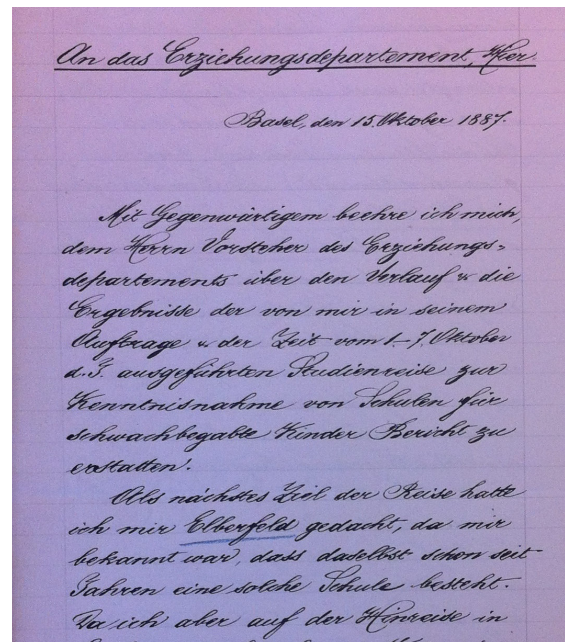 An das Erziehungsdepartement, Hier.
Basel, den 15. Oktober 1887.
Mit Gegenwärtigem beehre ich mich,
dem Herrn Vorsteher des Erziehungs=
departements über den Verlauf & die
Ergebnisse der von mir in seinem
Auftrage & der Zeit vom 1.–7. Oktober
d. J. ausgeführten Studienreise zur
Kenntnisnahme von Schulen für
schwachbegabte Kinder Bericht zu
erstatten.
Als nächstes Ziel der Reise hatte
ich mir Elberfeld gedacht, da mir
bekannt war, dass daselbst schon seit
Jahren eine solche Schule besteht.
Da ich aber auf der Hinreise in